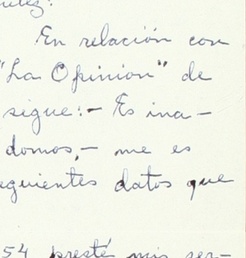 En relación con
"La Opinion" de
sigue:- Es ina-
domos,- me es
guientes datos que
54 presté mis ser-